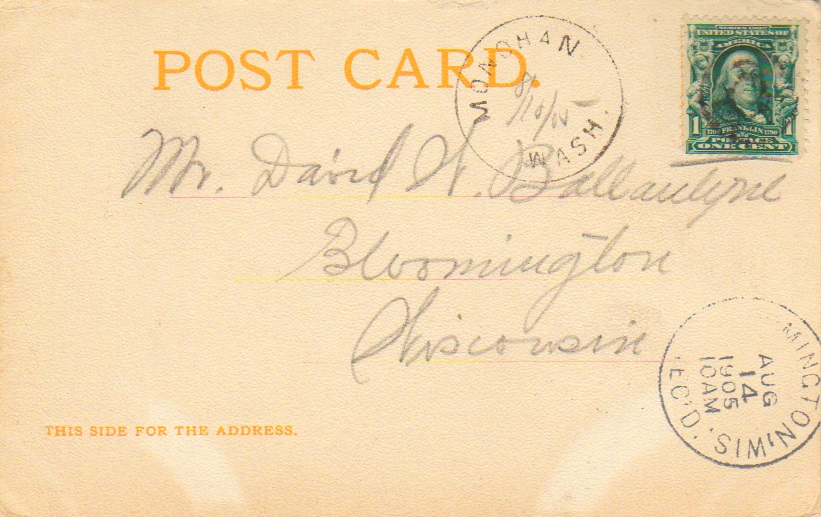 POST CARD.
MONOHAN
WASH.
8/10/05
SERIES 1902
UNITED STATES OF
AMERICA
1 1706 FRANKLIN 1790 1
POSTAGE
ONE CENT
Mr. David W. Ballantyne
Bloomington
Wisconsin
MINGTON, WIS.
AUG
14
1905
10AM
REC'D.
THIS SIDE FOR THE ADDRESS.